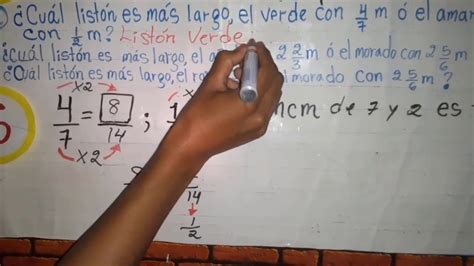 ¿Cuál listón es más largo, el verde con 4/7 m ó el ama
con 1/2 m? Listón Verde
¿Cuál listón es más largo, el a 2 2/3 m ó el morado con 2 5/6 m
¿Cuál listón es más largo, el ro morado con 2 5/6 m?
x2
4/7 = 8/14 ; 1 mcm de 7 y 2 es
x2
14
1/2